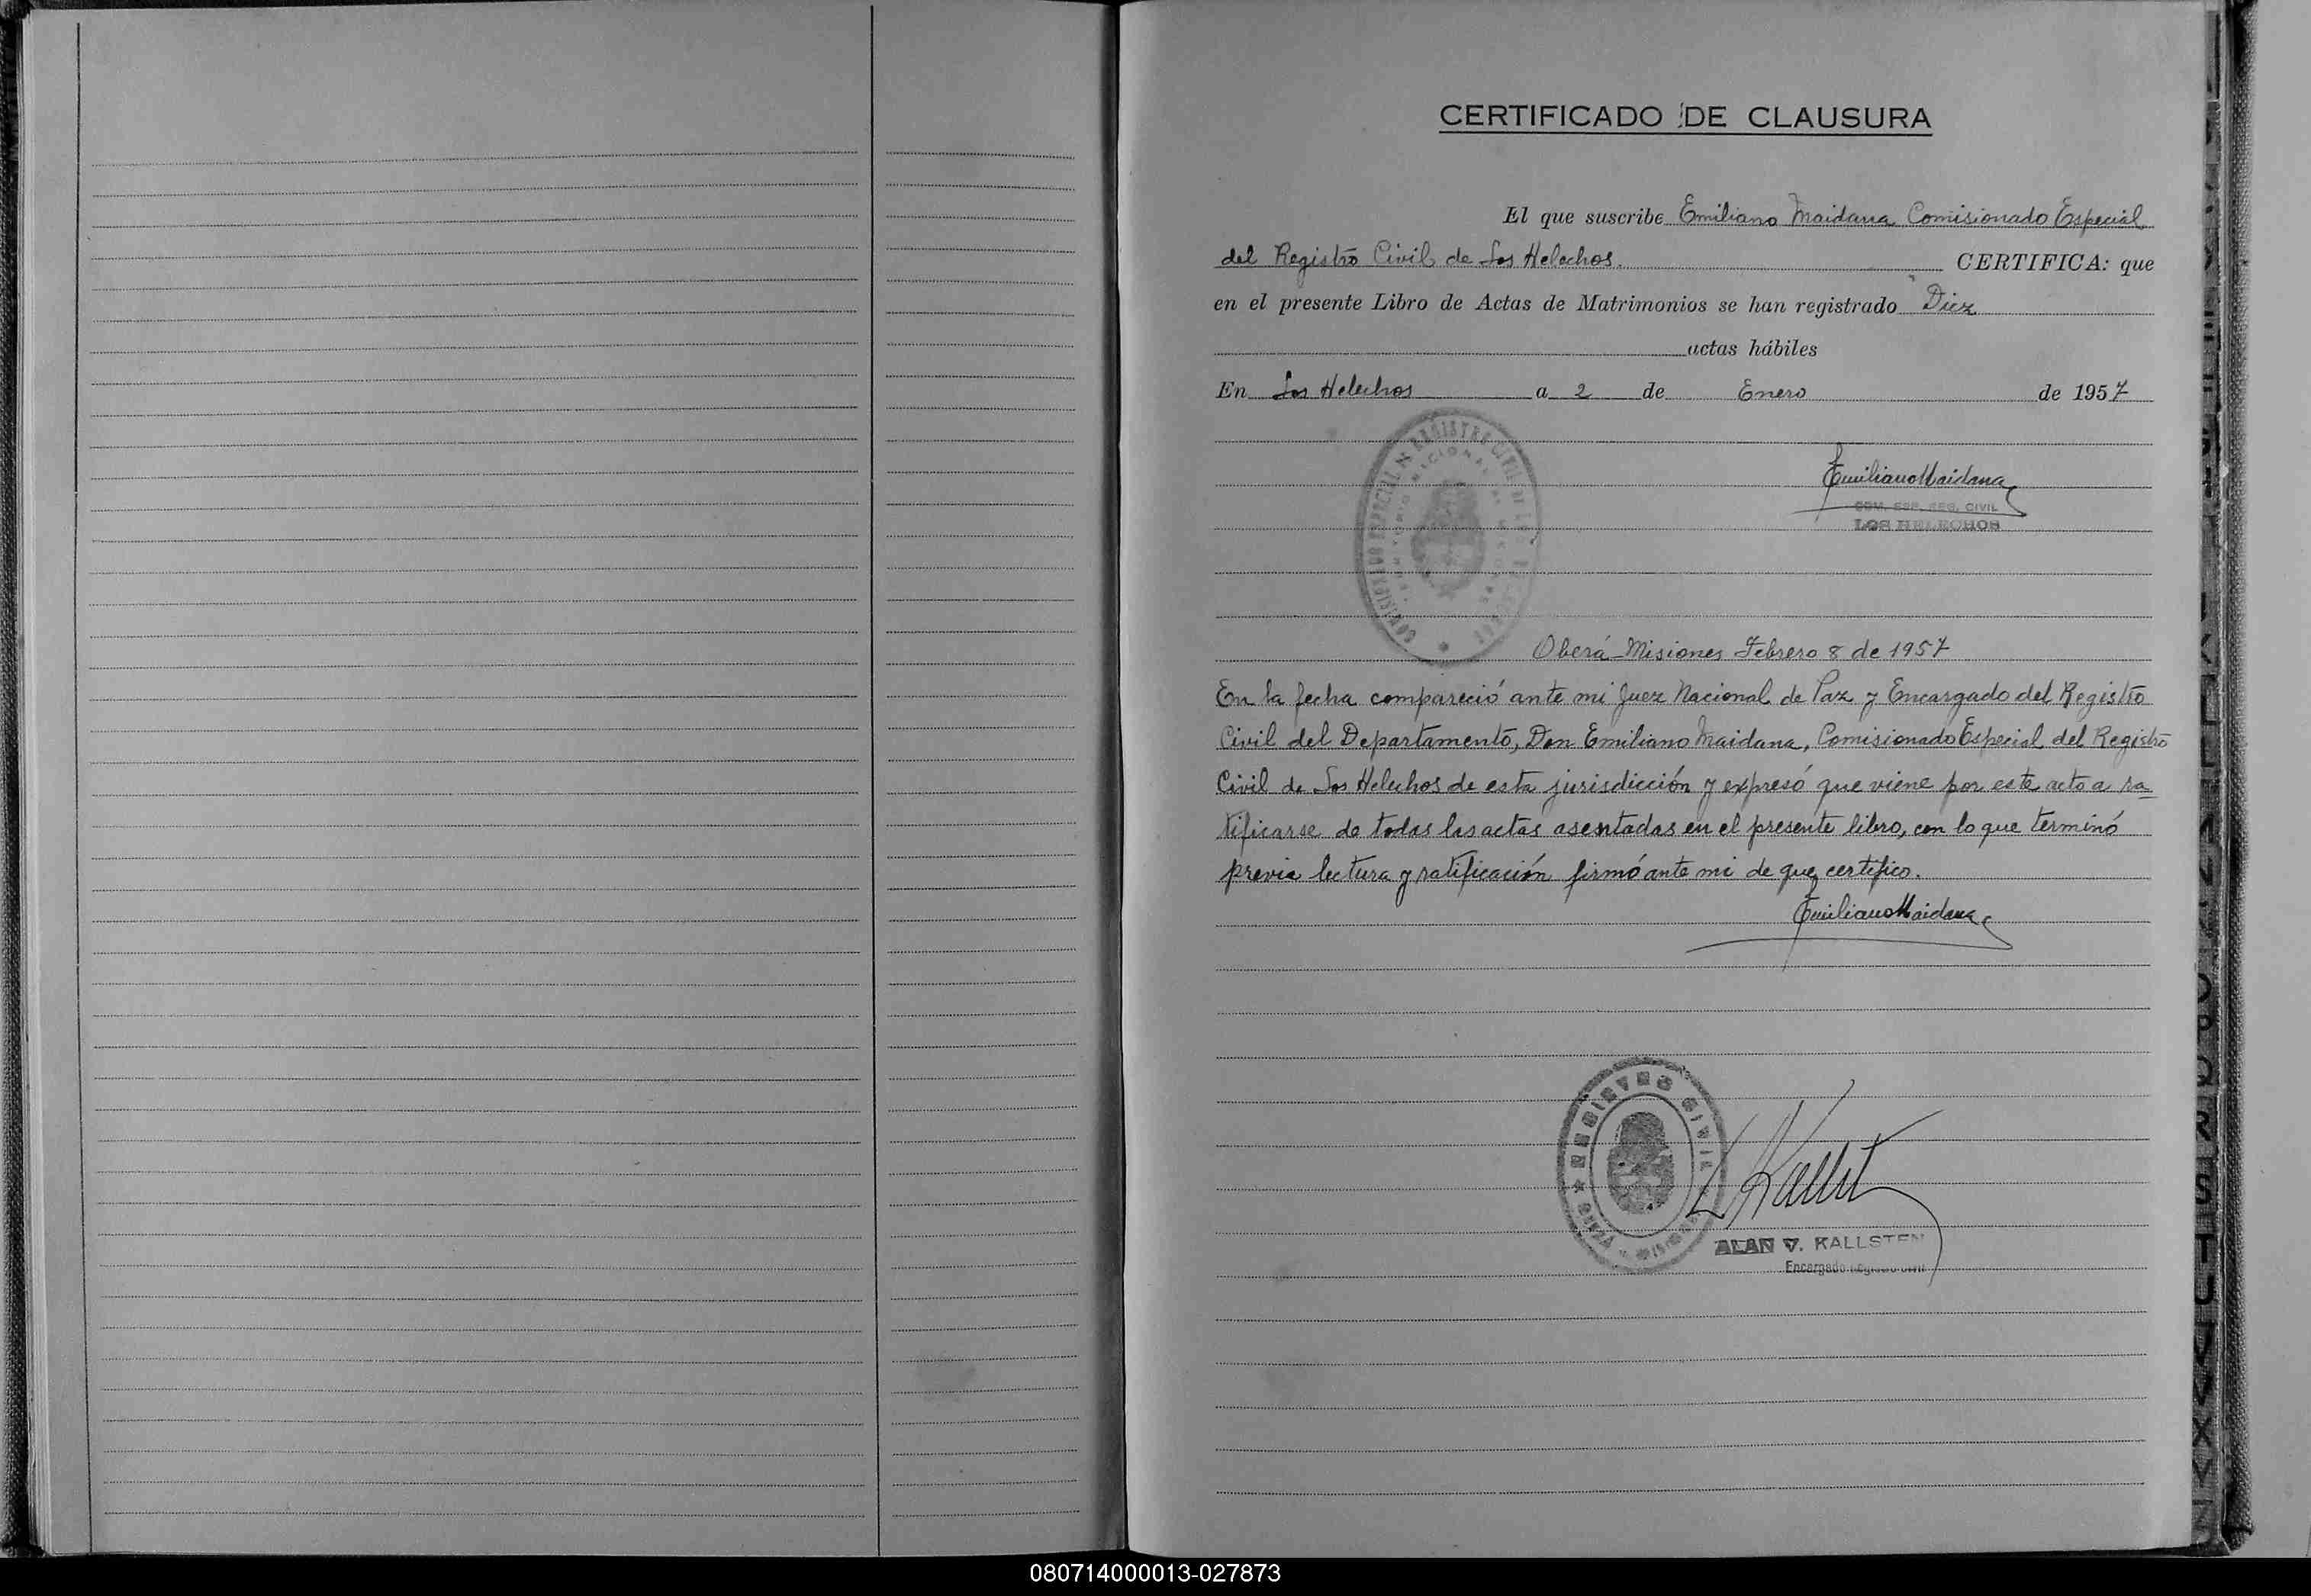 CERTIFICADO DE CLAUSURA
El que suscribe Emiliano Maidana Comisionado Especial
del Registro Civil de Los Helechos. CERTIFICA: que
en el presente Libro de Actas de Matrimonios se han registrado Diez
actas hábiles
En Los Helechos a 2 de Enero de 1957
Emiliano Maidana
COM. ESP. REG. CIVIL
LOS HELECHOS
Oberá Misiones Febrero 8 de 1957
En la fecha compareció ante mi Juez Nacional de Paz y Encargado del Registro
Civil del Departamento, Don Emiliano Maidana, Comisionado Especial del Registro
Civil de Los Helechos de esta jurisdicción y expresó que viene por este acto a ra_
tificarse de todas las actas asentadas en el presente libro, con lo que terminó
previa lectura y ratificación firmó ante mi de que certifico.
Emiliano Maidana
REGISTRO CIVIL
ALAN V. KALLSTEN
Encargado Registro Civil
080714000013-027873